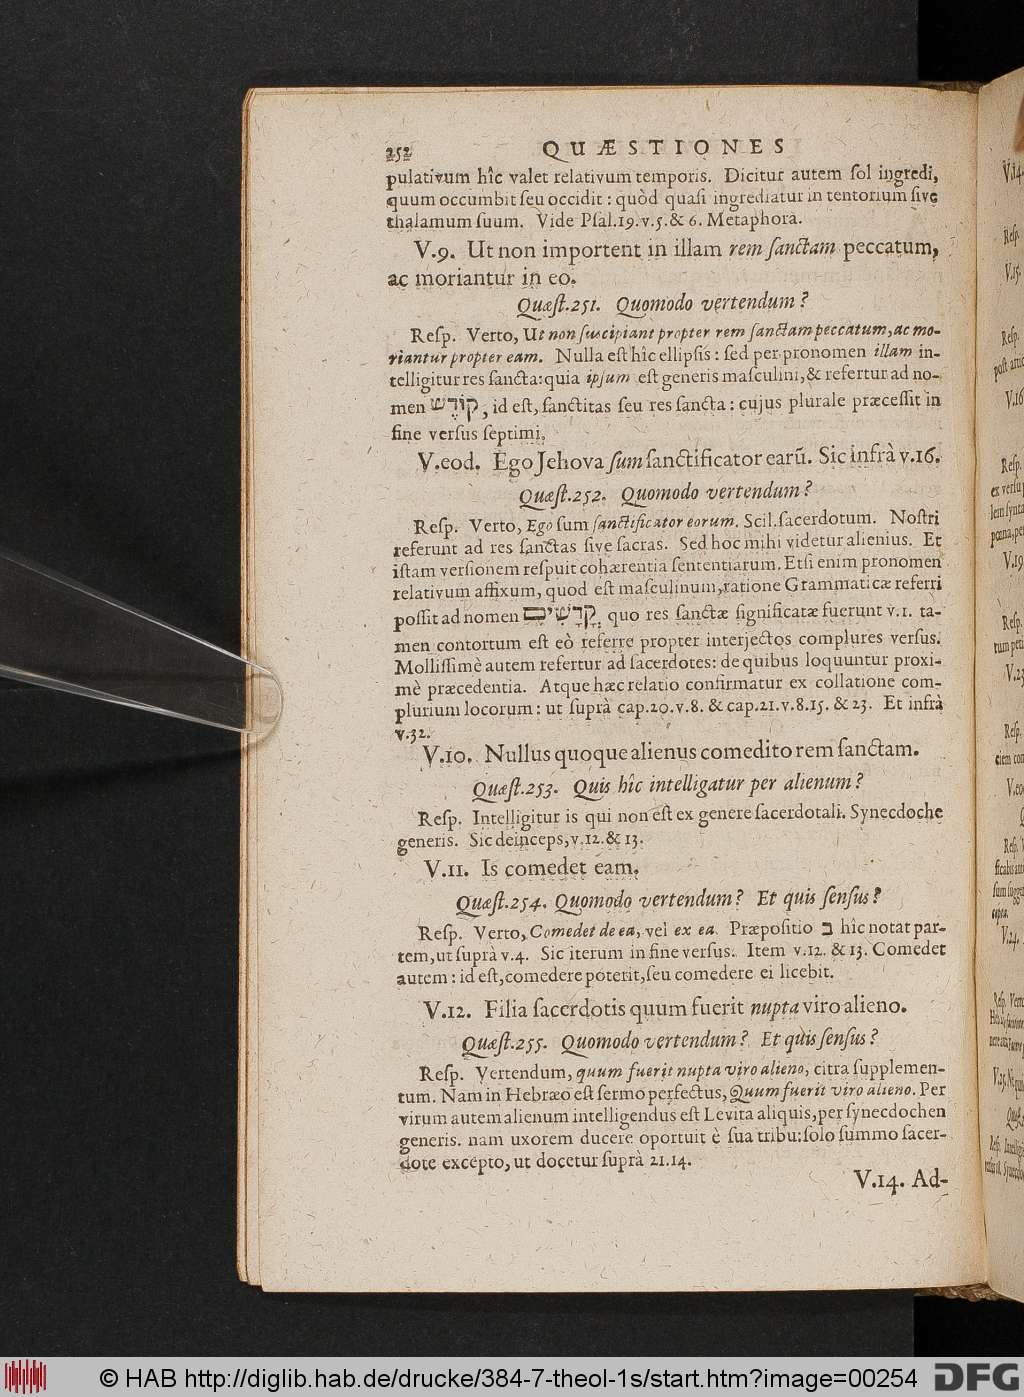 252 QUÆSTIONES
pulativum hîc valet relativum temporis. Dicitur autem ſol ingredi,
quum occumbit ſeu occidit : quòd quaſi ingrediatur in tentorium ſive
thalamum ſuum. Vide Pſal.19.v.5.& 6. Metaphora.
V.9. Ut non importent in illam rem ſanctam peccatum,
ac moriantur in eo.
Quæſt.251. Quomodo vertendum?
Reſp. Verto, Ut non ſuscipiant propter rem ſanctam peccatum, ac mo-
riantur propter eam. Nulla eſt hîc ellipſis : ſed per pronomen illam in-
telligitur res ſancta: quia ipſum eſt generis maſculini, & refertur ad no-
men קוֹדֶש, id eſt, ſanctitas ſeu res ſancta : cujus plurale præceſſit in
fine verſus ſeptimi.
V.eod. Ego Jehova ſum ſanctificator earũ. Sic infrà v.16.
Quæſt.252. Quomodo vertendum?
Reſp. Verto, Ego ſum ſanctificator eorum. Scil. ſacerdotum. Noſtri
referunt ad res ſanctas ſive ſacras. Sed hoc mihi videtur alienius. Et
iſtam verſionem reſpuit cohærentia ſententiarum. Etſi enim pronomen
relativum affixum, quod eſt maſculinum, ratione Grammaticæ referri
poſſit ad nomen קָדָשִׁים, quo res ſanctæ ſignificatæ fuerunt v.1. ta-
men contortum eſt eò referre propter interjectos complures verſus.
Molliſſimè autem refertur ad ſacerdotes: de quibus loquuntur proxi-
mè præcedentia. Atque hæc relatio confirmatur ex collatione com-
plurium locorum : ut ſuprà cap.20.v.8. & cap.21.v.8.15. & 23. Et infrà
v.32.
V.10. Nullus quoque alienus comedito rem ſanctam.
Quæſt.253. Quis hîc intelligatur per alienum?
Reſp. Intelligitur is qui non eſt ex genere ſacerdotali. Synecdoche
generis. Sic deinceps, v.12.& 13.
V.11. Is comedet eam.
Quæſt.254. Quomodo vertendum? Et quis ſenſus?
Reſp. Verto, Comedet de ea, vel ex ea. Præpoſitio ב hîc notat par-
tem, ut ſuprà v.4. Sic iterum in fine verſus. Item v.12. & 13. Comedet
autem : id eſt, comedere poterit, ſeu comedere ei licebit.
V.12. Filia ſacerdotis quum fuerit nupta viro alieno.
Quæſt.255. Quomodo vertendum? Et quis ſenſus?
Reſp. Vertendum, quum fuerit nupta viro alieno, citra ſupplemen-
tum. Nam in Hebræo eſt ſermo perfectus, Quum fuerit viro alieno. Per
virum autem alienum intelligendus eſt Levita aliquis, per ſynecdochen
generis. nam uxorem ducere oportuit è ſua tribu: ſolo ſummo ſacer-
dote excepto, ut docetur ſuprà 21.14.
V.14. Ad-
V.14.
Reſp.
V.15.
Reſp.
V.16
Reſp.
V.19
Reſp.
V.23
Reſp.
V.24.
© HAB http://diglib.hab.de/drucke/384-7-theol-1s/start.htm?image=00254
DFG